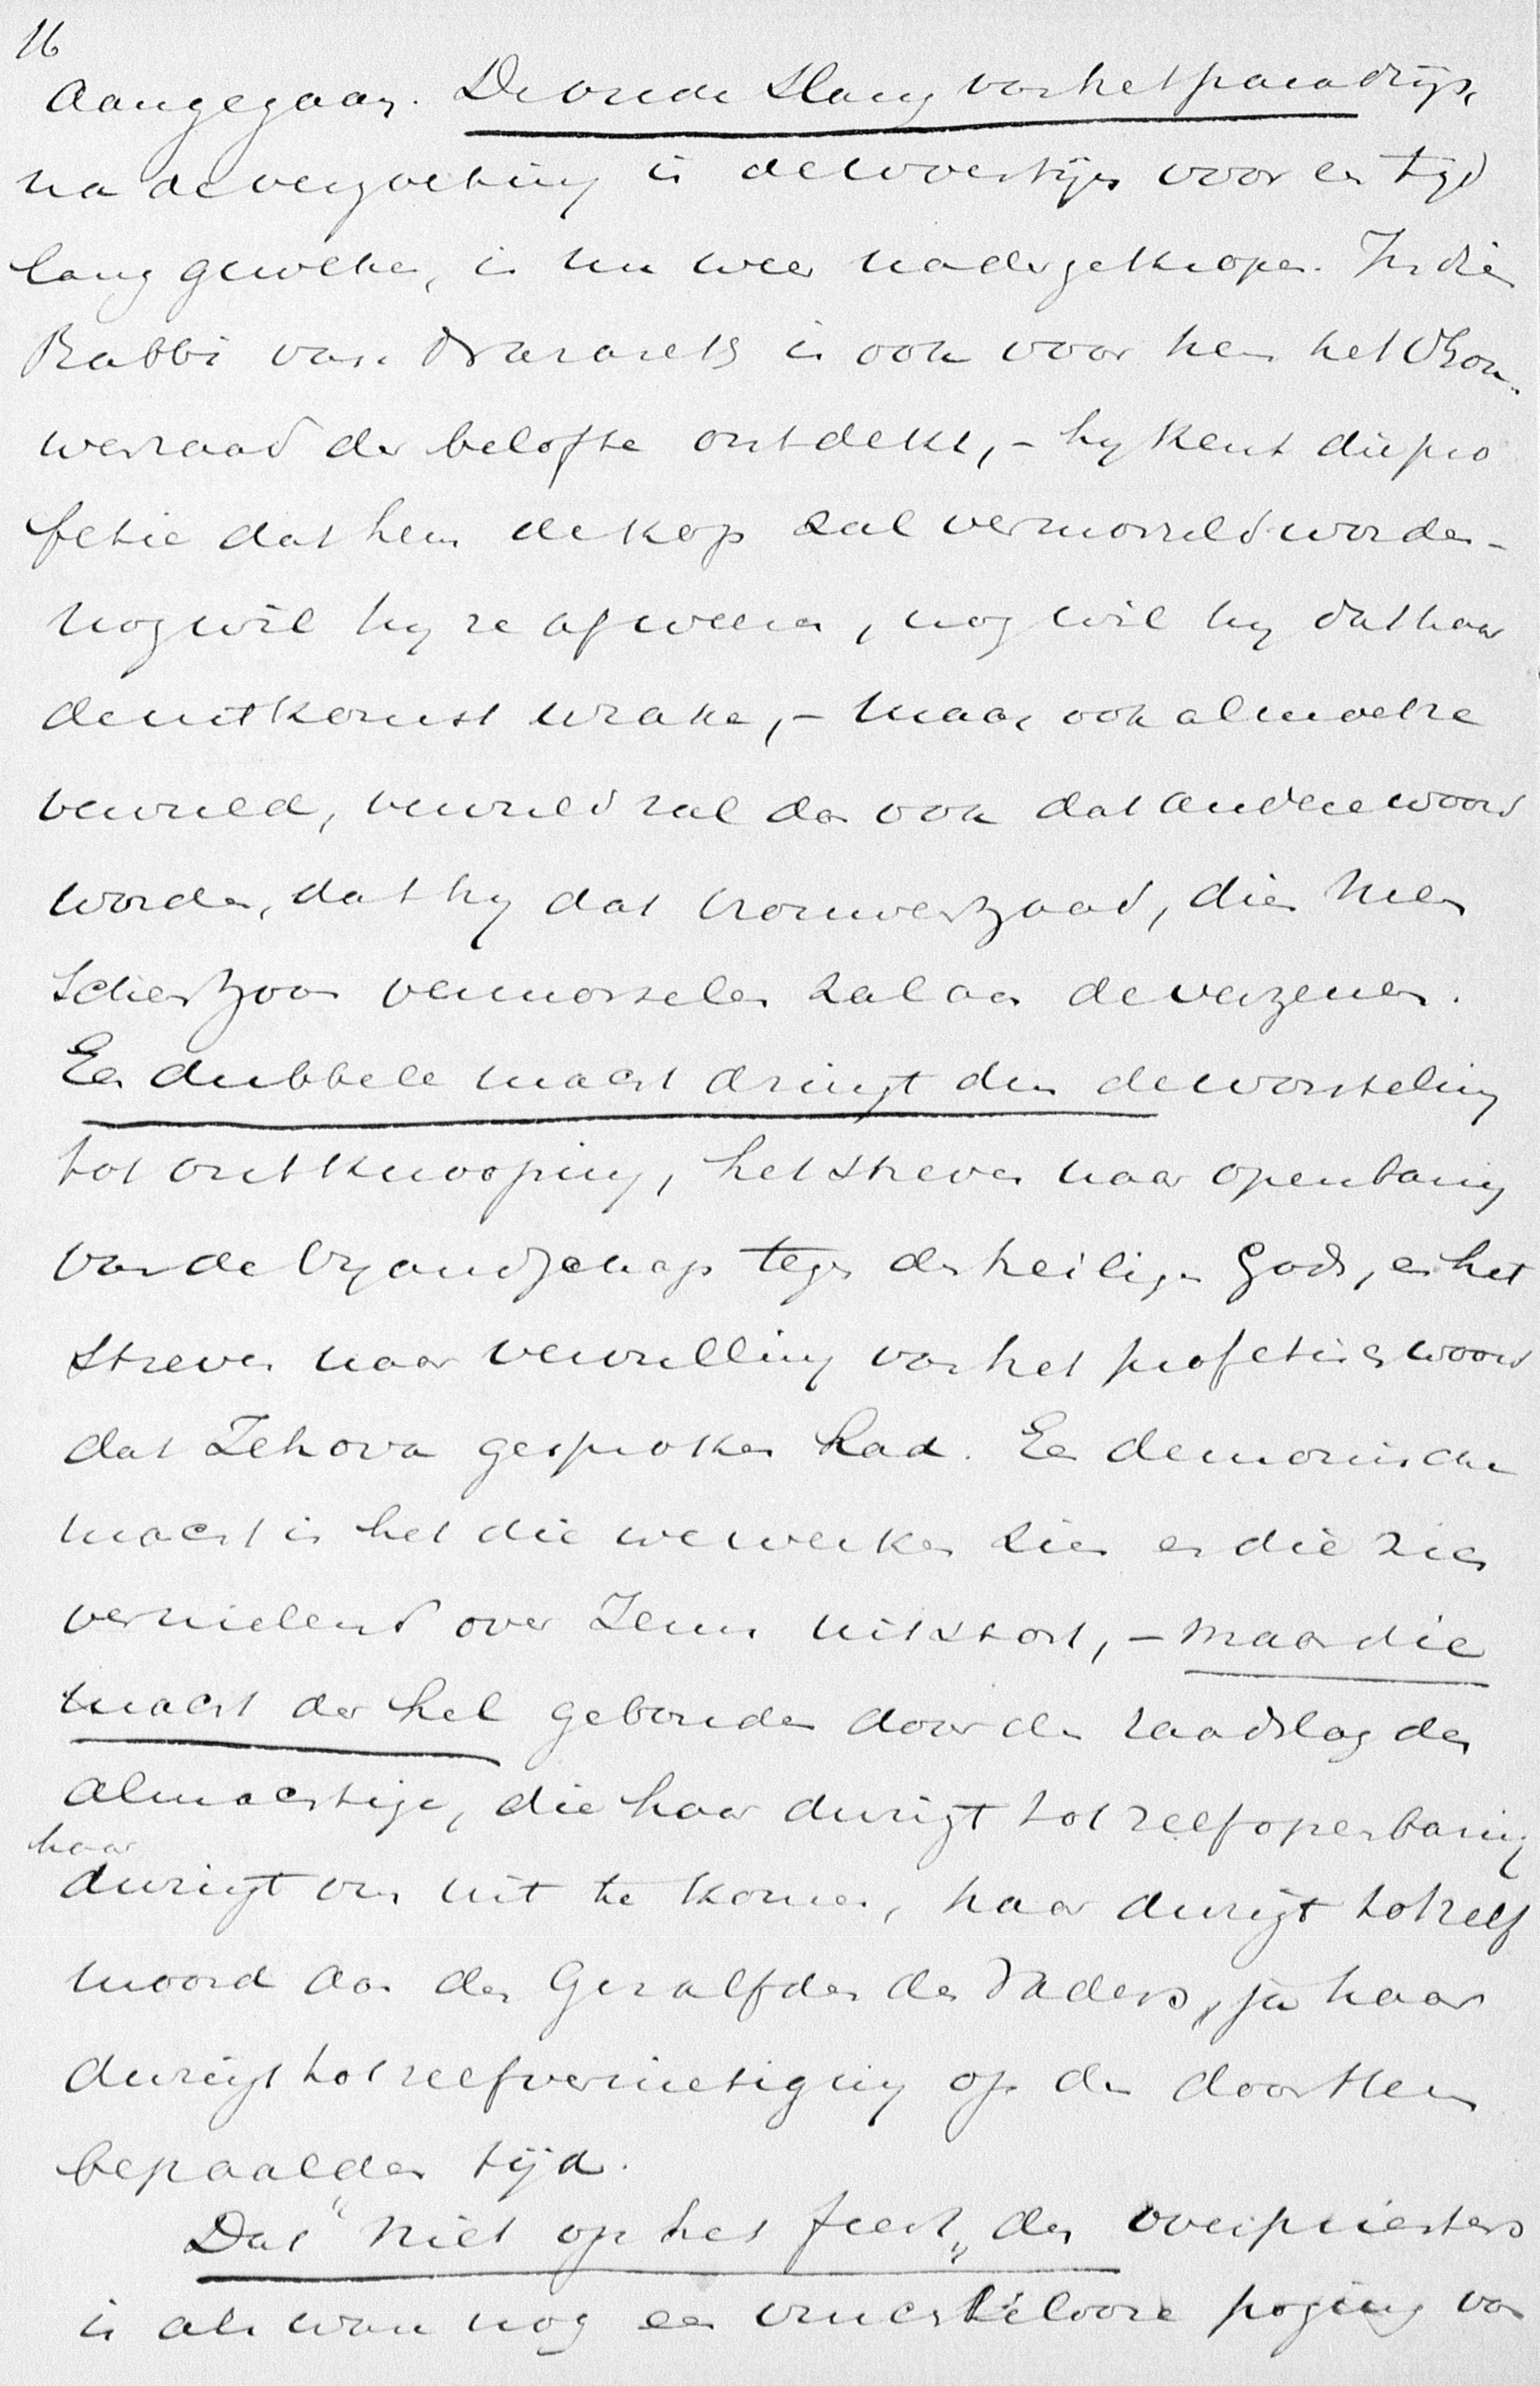 16
aangegaan. De oude Slang van het paradijs,
na de verzoeking in de woestijn voor een tijd
lang geweken, is nu weer nadergekropen. In dien
Rabbi van Nazareth is ook voor hem het Vrou-
wenzaad der belofte ontdekt, – hy kent die pro
fetie dat hem de kop zal vermorseld worden –
nog wil hy ze afweren, nog wil hy dat haar
de uitkomst wrake, – maar ook al moet ze
vervuld, vervuld zal dan ook dat andere woord
worden, dat hy dat vrouwenzaad, dien Men
schenzoon vermorselen zal aan de verzenen.
Een dubbele macht dringt dus de worsteling
tot ontknooping, het streven naar openbaring
van de vyandschap tegen den heilige Gods, en het
streven naar vervulling van het profetische woord
dat Jehova gesproken had. Een demonische
macht is het die we werken zien en die zich
vernielend over Jezus uitstort, – maar die
macht der hel gebonden door den raadslag des
almachtige, die haar dwingt tot zelfopenbaring
haar
dwingt om uit te komen, haar dwingt tot zelf
moord aan den Gezalfde des Vaders, ja haar
dwingt tot zelfvernietiging op den door Hem
bepaalden tijd.
Dat "niet op het feest" der overpriesters
is als ware nog een vruchtelooze poging van